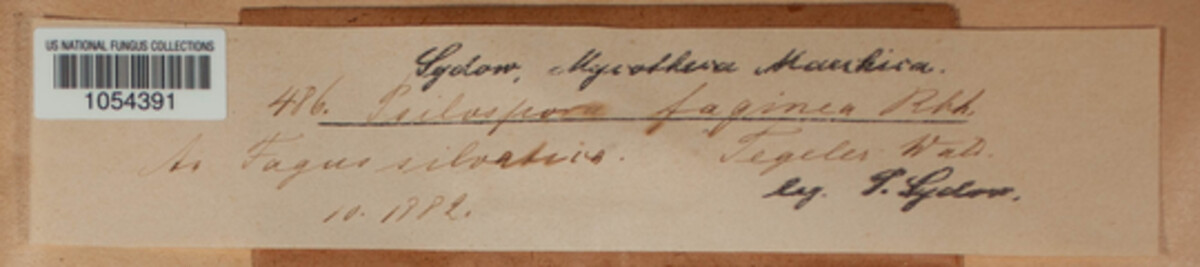 US NATIONAL FUNGUS COLLECTIONS
1054391
Sydow, Mycotheca Marchica.
486. Psilospora faginea Rbh.
An Fagus silvatica. Tegeler Wald.
leg. P. Sydow.
10. 1882.